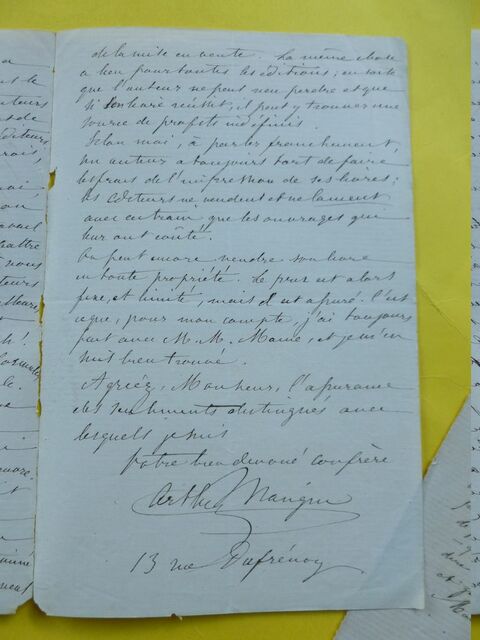 de la mise en vente. La même chose
a lieu pour toutes les éditions, en sorte
que l'auteur ne peut rien perdre et que
si son livre réussit, il peut y trouver une
source de profits indéfinis.
Selon moi, à parler franchement,
un auteur a toujours tort de faire
les frais de l'impression de ses livres;
les éditeurs ne vendent et ne lancent
avec entrain que les ouvrages qui
leur ont coûté.
On peut encore vendre son livre
en toute propriété. Le prix est alors
fixe, et limité, mais il est assuré. C'est
ce que, pour mon compte, j'ai toujours
fait avec M. M. Mame, et je m'en
suis bien trouvé.
Agréez, Monsieur, l'assurance
des sentiments distingués avec
lesquels je suis
Votre bien dévoué confrère
Arthur Mangin
13 rue Dufrénoy